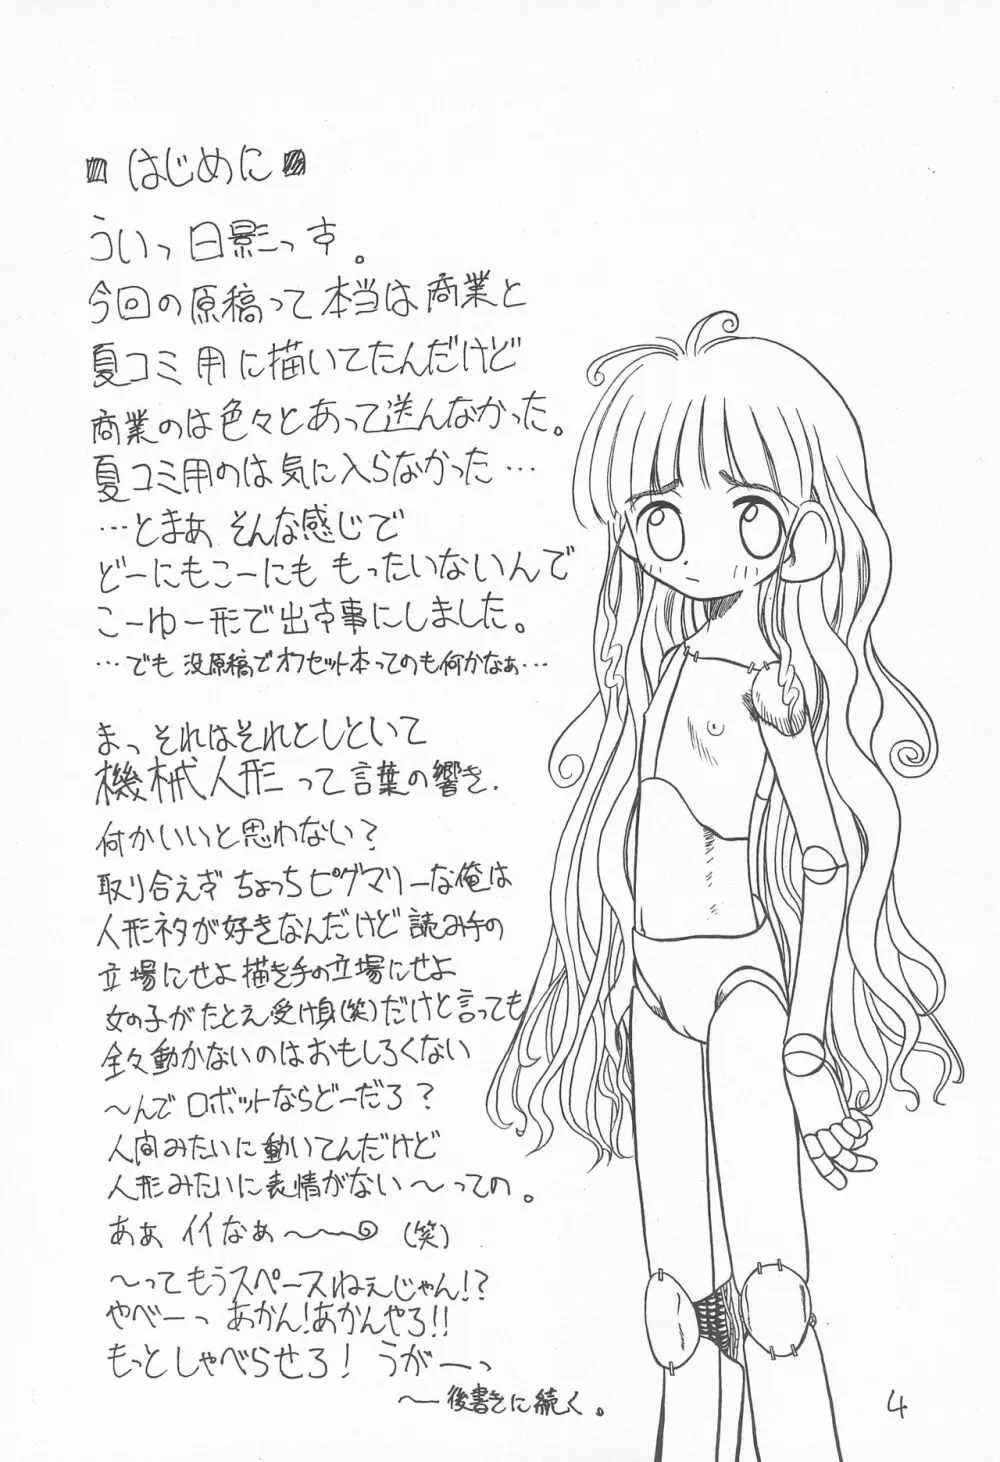 はじめに
ういっ日影っす。
今回の原稿って本当は商業と
夏コミ用に描いてたんだけど
商業のは色々とあって送んなかった。
夏コミ用のは気に入らなかった…
…とまぁ そんな感じで
どーにもこーにも もったいないんで
こーゆー形で出す事にしました。
…でも 没原稿でオフセット本ってのも何かなぁ…
まっ それはそれとしといて
機械人形って言葉の響き、
何かいいと思わない?
取り合えず ちょっちピグマリーな俺は
人形ネタが好きなんだけど 読み手の
立場にせよ描き手の立場にせよ
女の子がたとえ受け身(笑)だけと言っても
全々動かないのはおもしろくない
〜んで ロボットならどーだろ?
人間みたいに動いてんだけど
人形みたいに表情がない〜っての。
あぁ イイなぁ〜〜 (笑)
〜ってもうスペースねぇじゃん!?
やべーっ あかん!あかんやろ!!
もっとしゃべらせろ! うがーっ
〜後書きに続く。
4